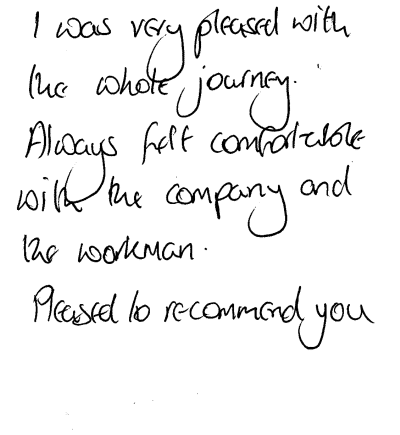 I was very pleased with
the whole journey.
Always felt comfortable
with the company and
the workman.
Pleased to recommend you